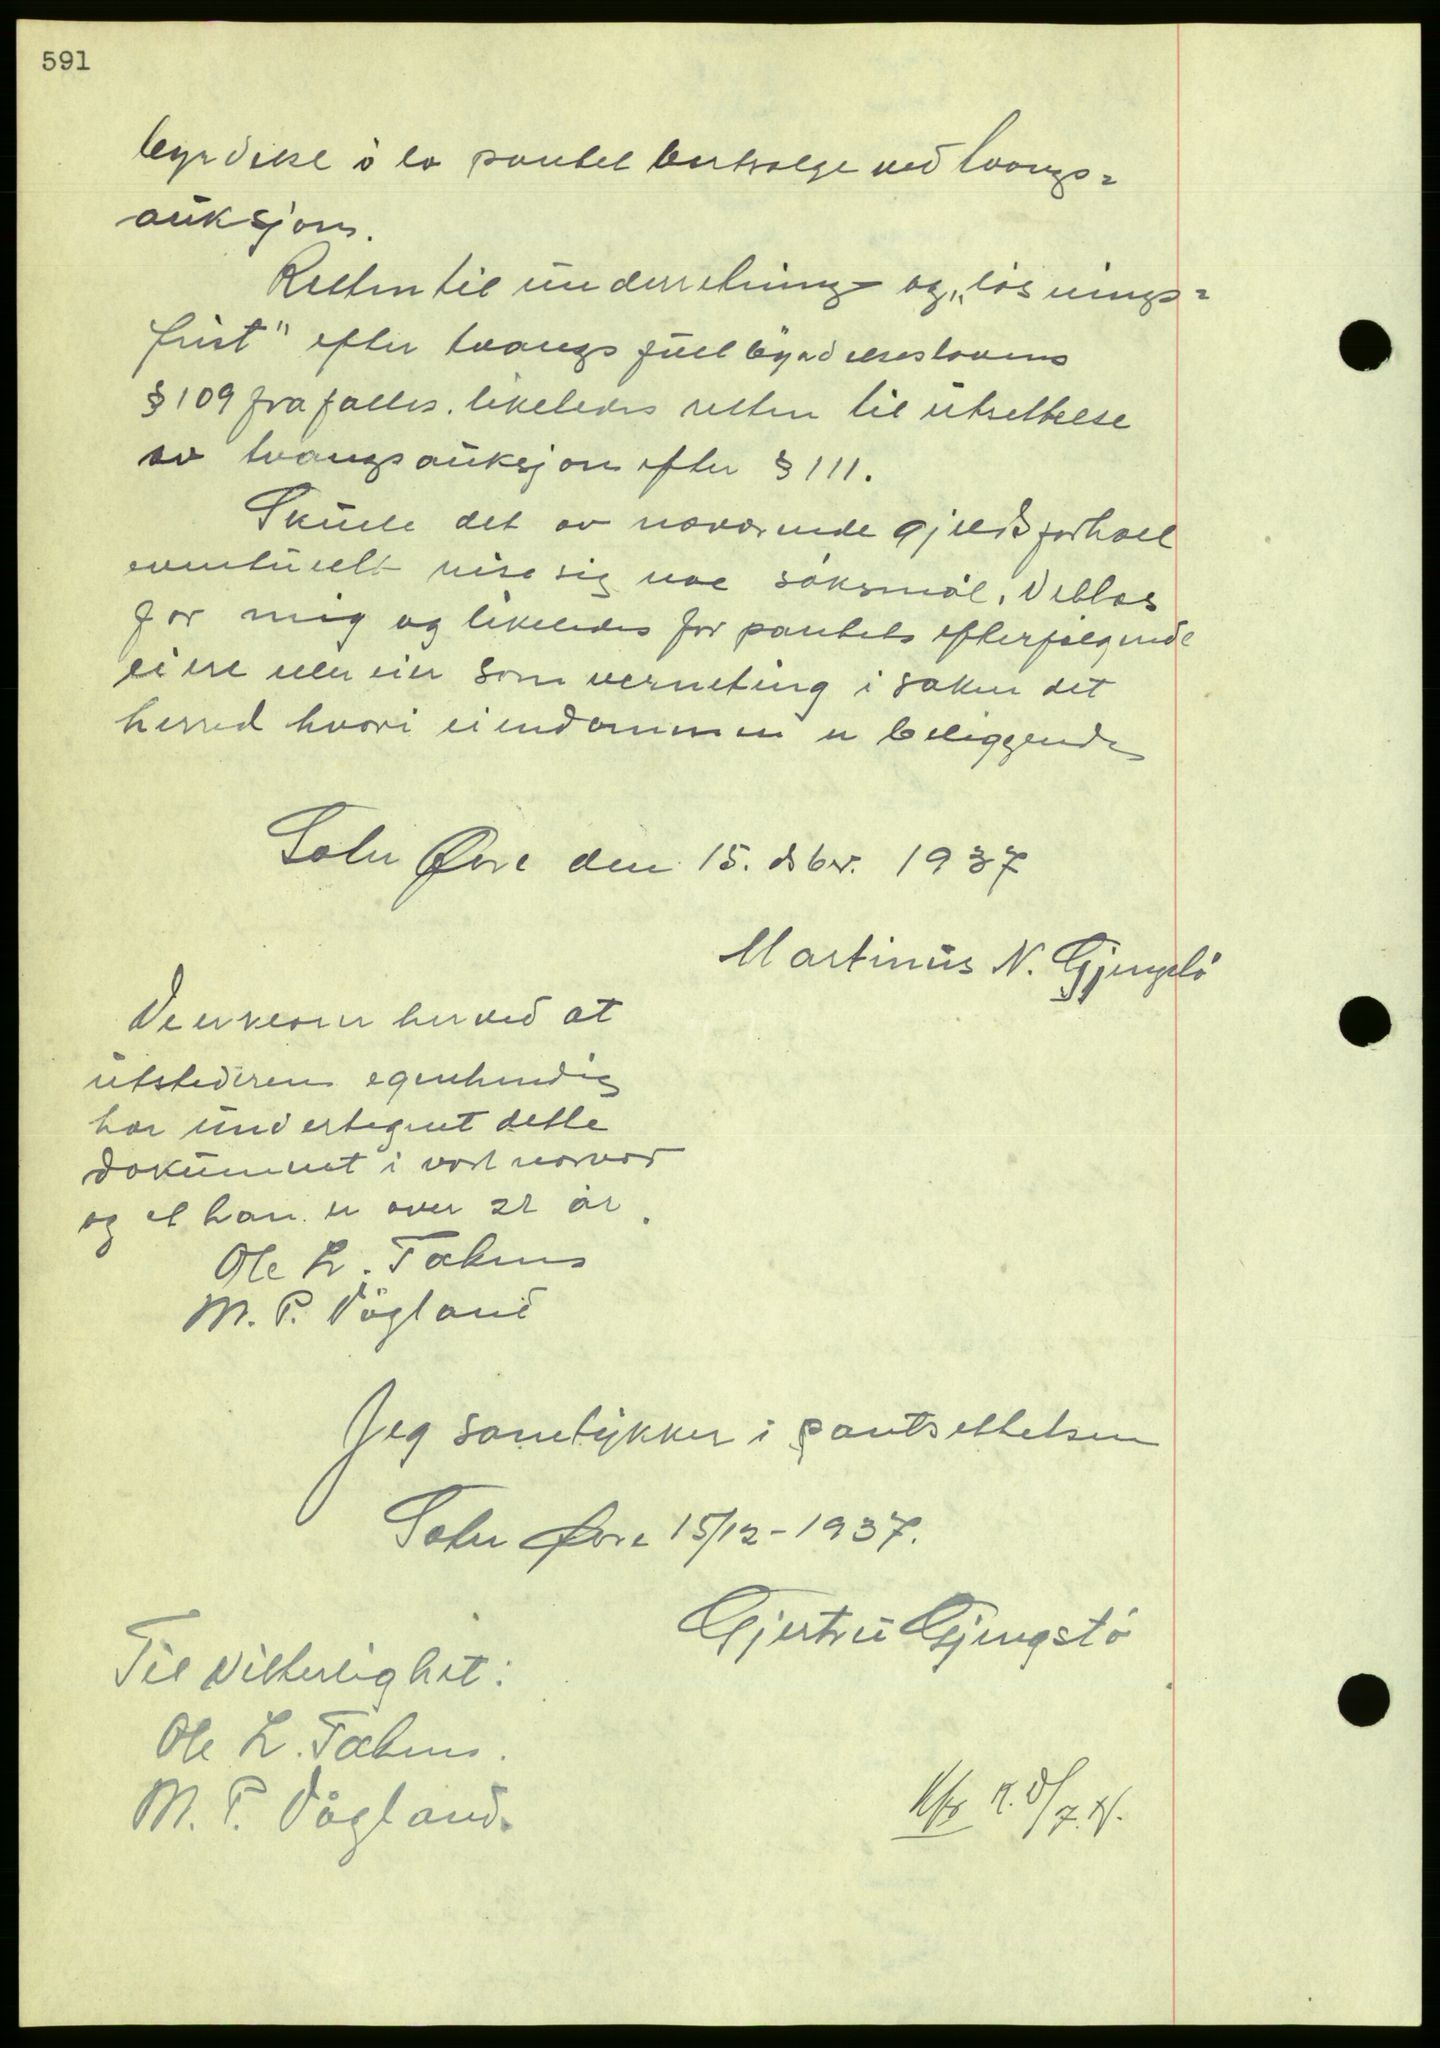 591
byrdelse å la pantet bortselge ved tvangs=
auksjon.
Retten til underretning og „løsnings=
frist" efter tvangsfullbyrdelseslovens
§ 109 frafalles. likeledes retten til utsettelse
av tvangsauksjon efter § 111.
Skulle det av nærværende gjeldsforhold
eventuelt reise sig noe søksmål, vedtas
for mig og likeledes for pantets efterfølgende
eiere eller eier som verneting i saken det
herred hvori eiendommen er beliggende
den 15. dsbr. 1937
Martinus N. Gjengstø
Vi erklærer herved at
utstederen egenhendig
har undertegnet dette
dokument i vort nærvær
og at han er over 21 år.
Ole L.
M. P. Vågland
Jeg samtykker i pantsettelsen
15/12-1937.
Gjertru Gjengstø
Til Vitterlighet:
Ole L.
M. P. Vågland.